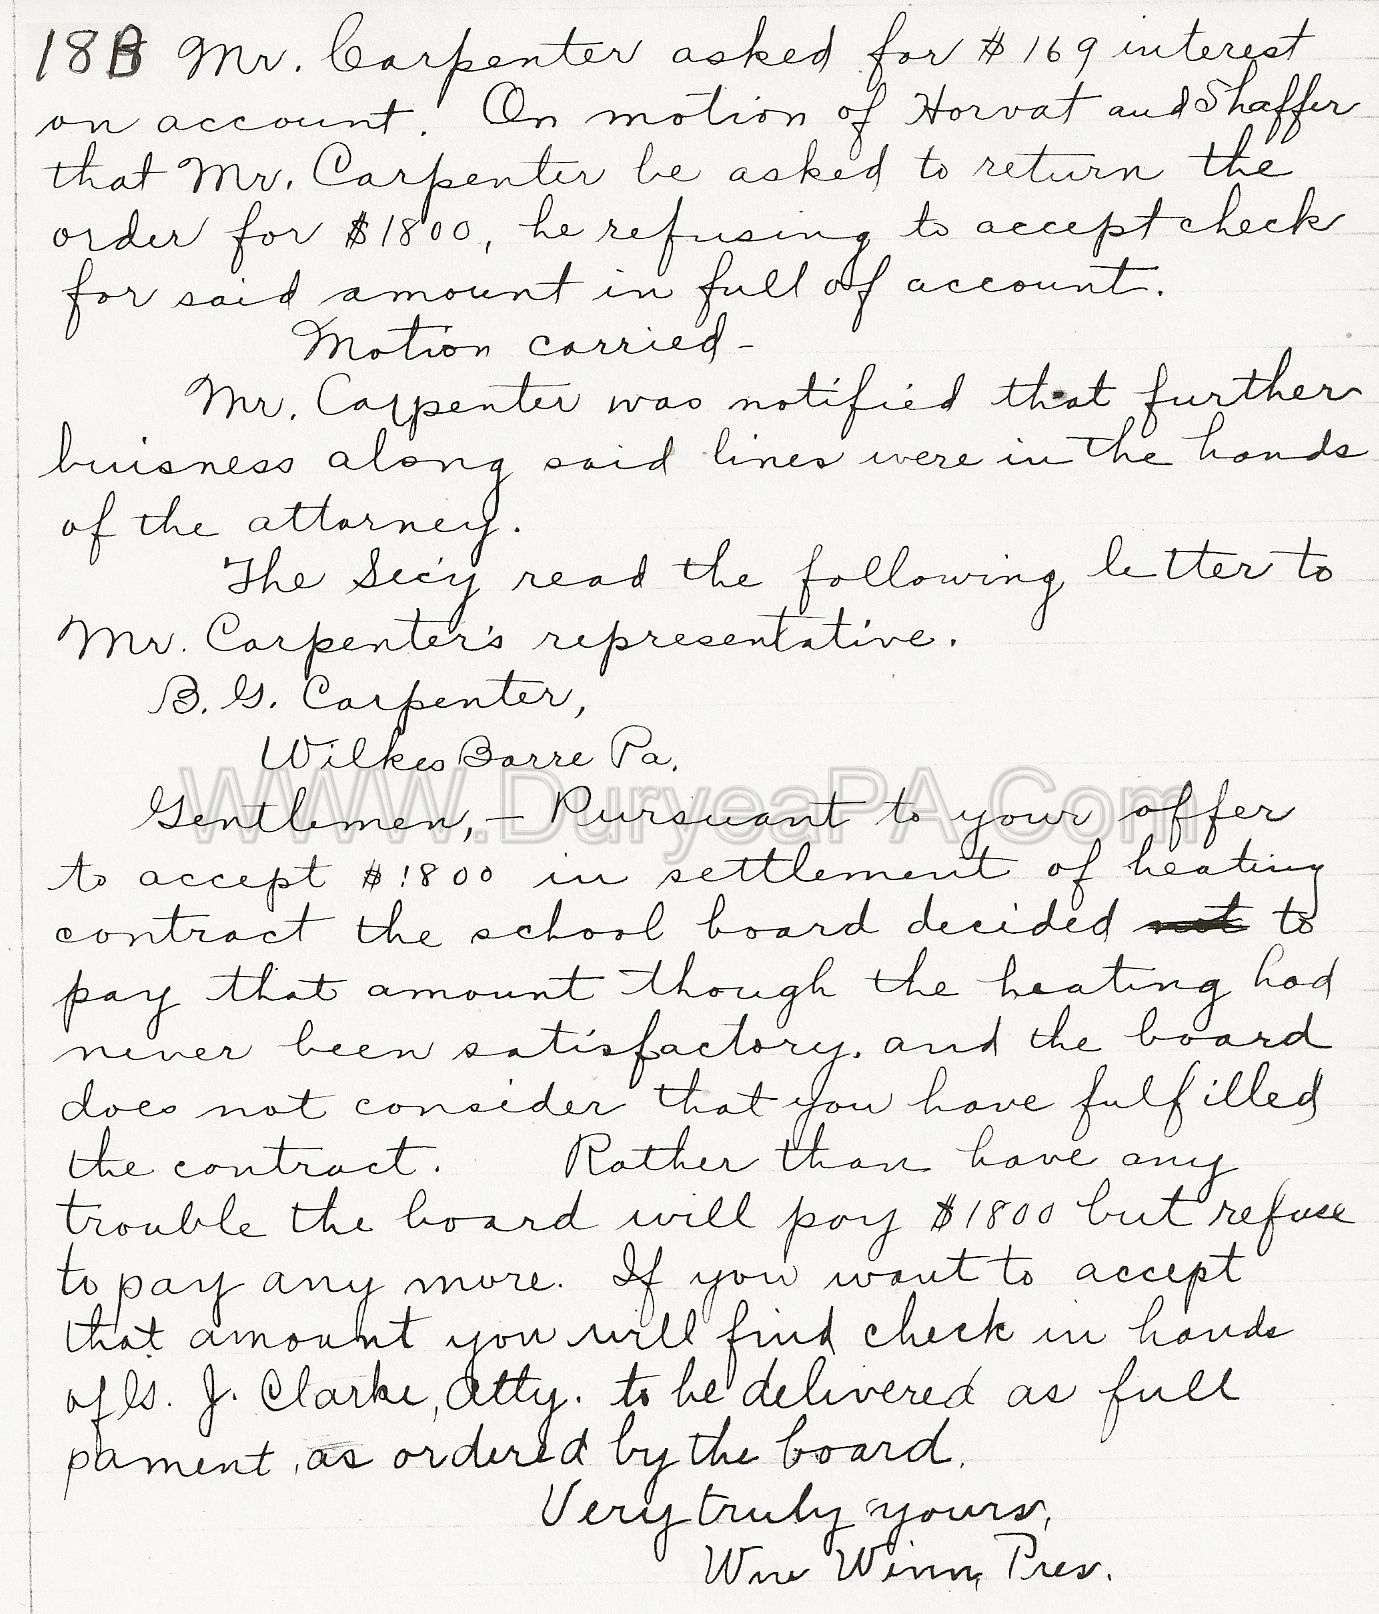 18B Mr. Carpenter asked for $169 interest
on account. On motion of Horvat and Shaffer
that Mr. Carpenter be asked to return the
order for $1800, he refusing to accept check
for said amount in full of account.
Motion carried -
Mr. Carpenter was notified that further
buisness along said lines were in the hands
of the attorney.
The Sec'y read the following letter to
Mr. Carpenter's representative.
B. G. Carpenter,
Wilkes Barre Pa.
WWW.DuryeaPA.Com
Gentlemen, - Pursuant to your offer
to accept $1800 in settlement of heating
contract the school board decided not to
pay that amount though the heating had
never been satisfactory. and the board
does not consider that you have fulfilled
the contract. Rather than have any
trouble the board will pay $1800 but refuse
to pay any more. If you want to accept
that amount you will find check in hands
of G. J. Clarke, Atty. to be delivered as full
pament, as ordered by the board.
Very truly yours,
Wm Winn, Pres.